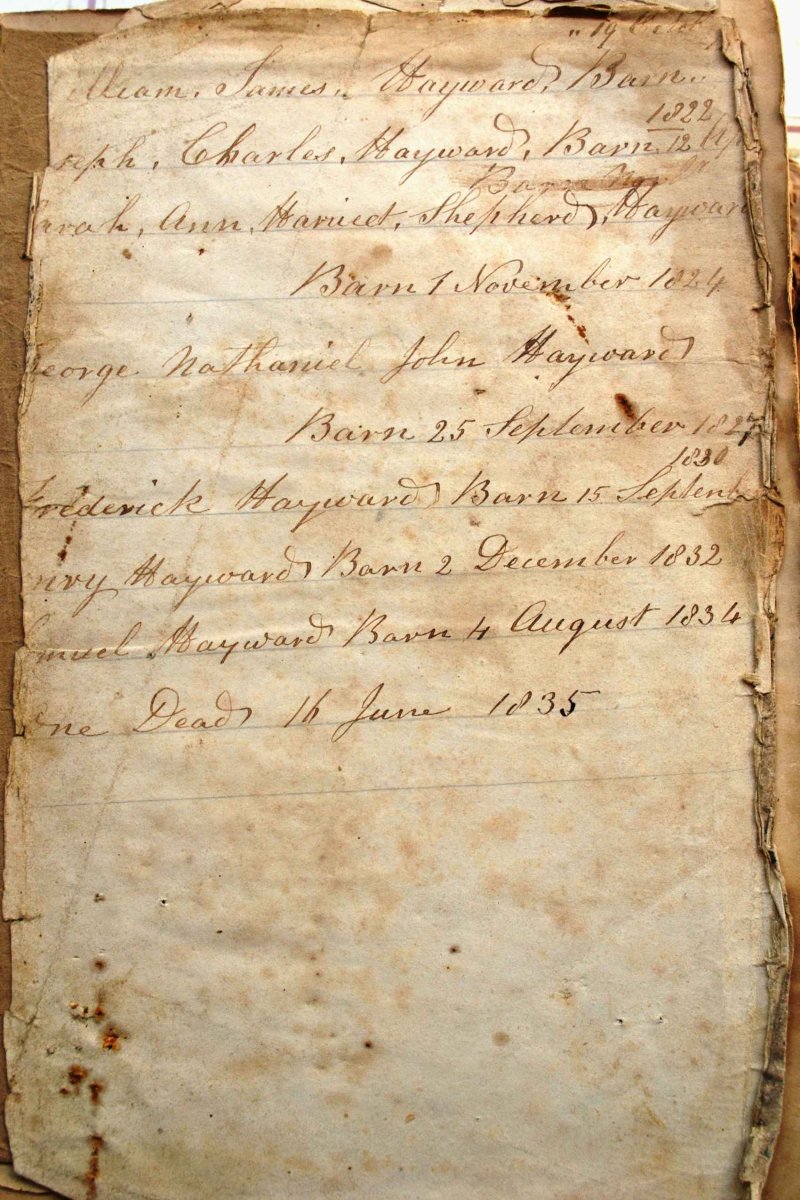 " 19
lliam, James, Hayward, Barn
1822
seph, Charles, Hayward, Barn 12 Ap
Barn
arah, Ann, Harriet, Shepherd, Hayward
Barn 1 November 1824
eorge Nathaniel John Hayward
Barn 25 September 1827
1830
Frederick Hayward Barn 15 Septemb
nry Hayward Barn 2 December 1832
muel Hayward Barn 4 August 1834
One Dead 16 June 1835